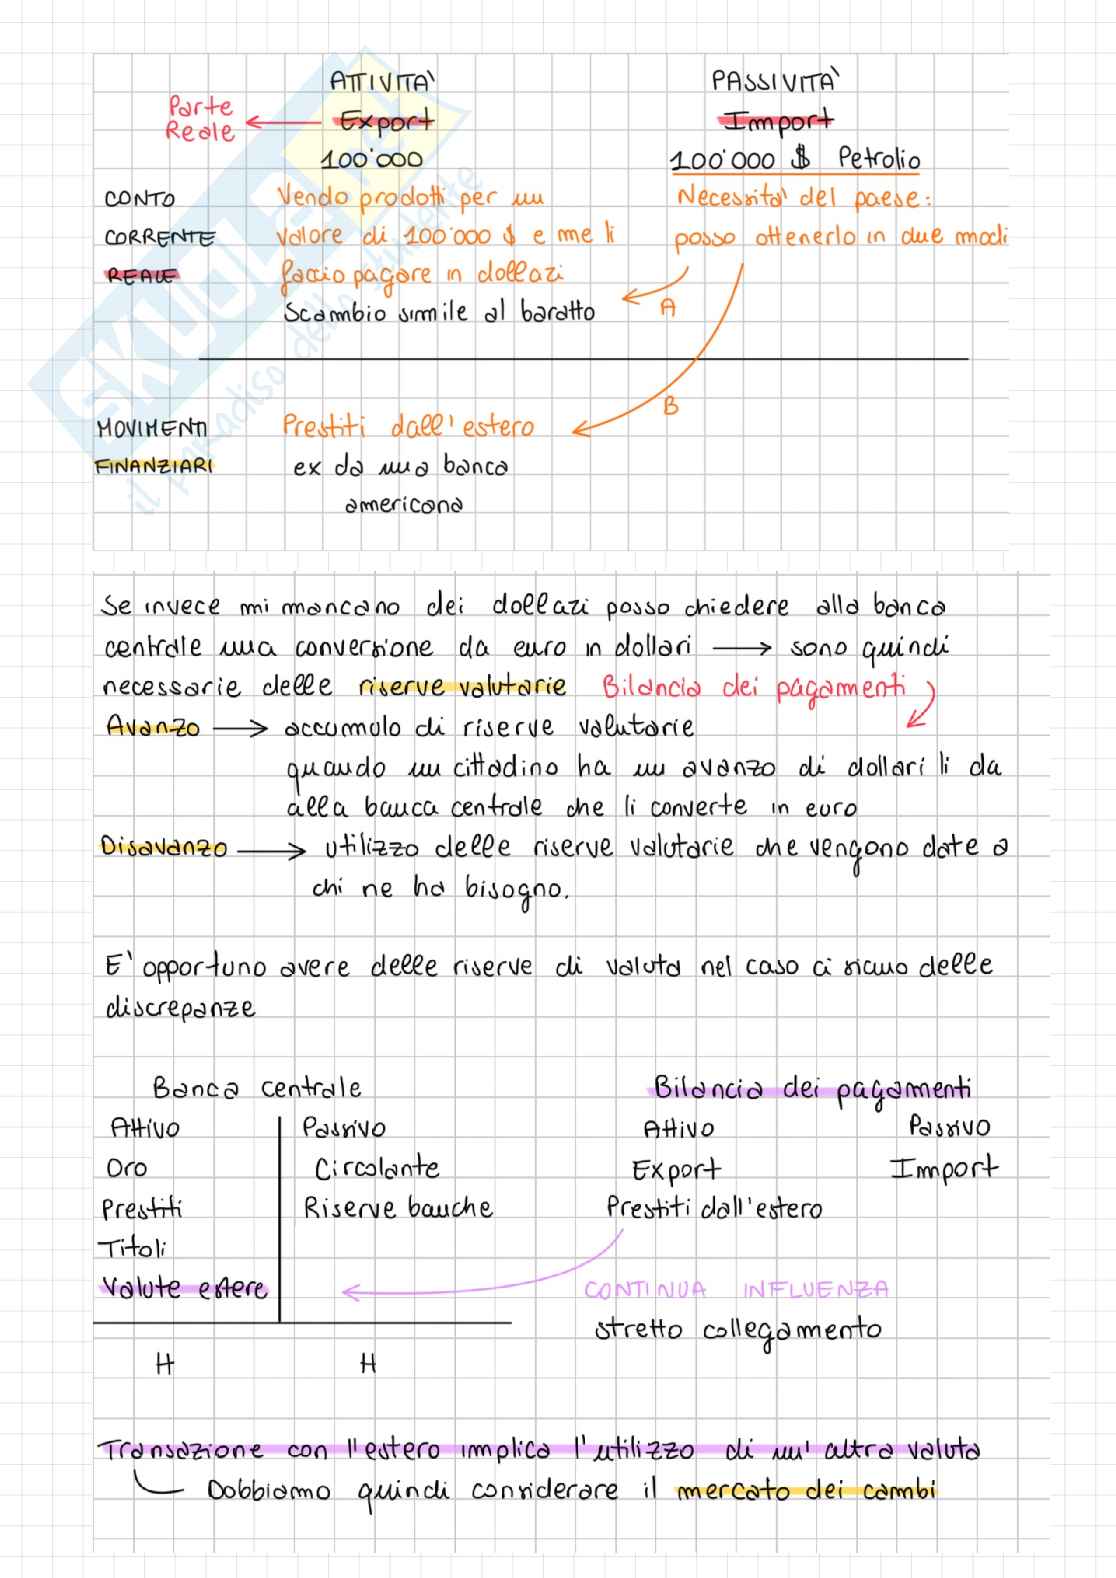 ATTIVITA' PASSIVITA'
Parte Export Import
Reale
100'000 100'000 $ Petrolio
CONTO Vendo prodotti per un Necessita' del paese:
CORRENTE valore di 100'000 $ e me li posso ottenerlo in due modi
REALE faccio pagare in dollazi
Scambio simile al baratto A
B
MOVIMENTI Prestiti dall'estero
FINANZIARI ex da una banca
americana
SKUOLA.net
il paradiso dello studente
Se invece mi mancano dei dollazi posso chiedere alla banca
centrale una conversione da euro in dollari → sono quindi
necessarie delle riserve valutarie Bilancia dei pagamenti
Avanzo → accumolo di riserve valutarie
quando un cittadino ha un avanzo di dollari li da
alla banca centrale che li converte in euro
Disavanzo → utilizzo delle riserve valutarie che vengono date a
chi ne ha bisogno.
E' opportuno avere delle riserve di valuta nel caso ci siano delle
discrepanze
Banca centrale Bilancia dei pagamenti
Attivo Passivo Attivo Passivo
Oro Circolante Export Import
Prestiti Riserve banche Prestiti dall'estero
Titoli
Valute estere CONTINUA INFLUENZA
stretto collegamento
H H
Transazione con l'estero implica l'utilizzo di un'altra valuta
Dobbiamo quindi considerare il mercato dei cambi